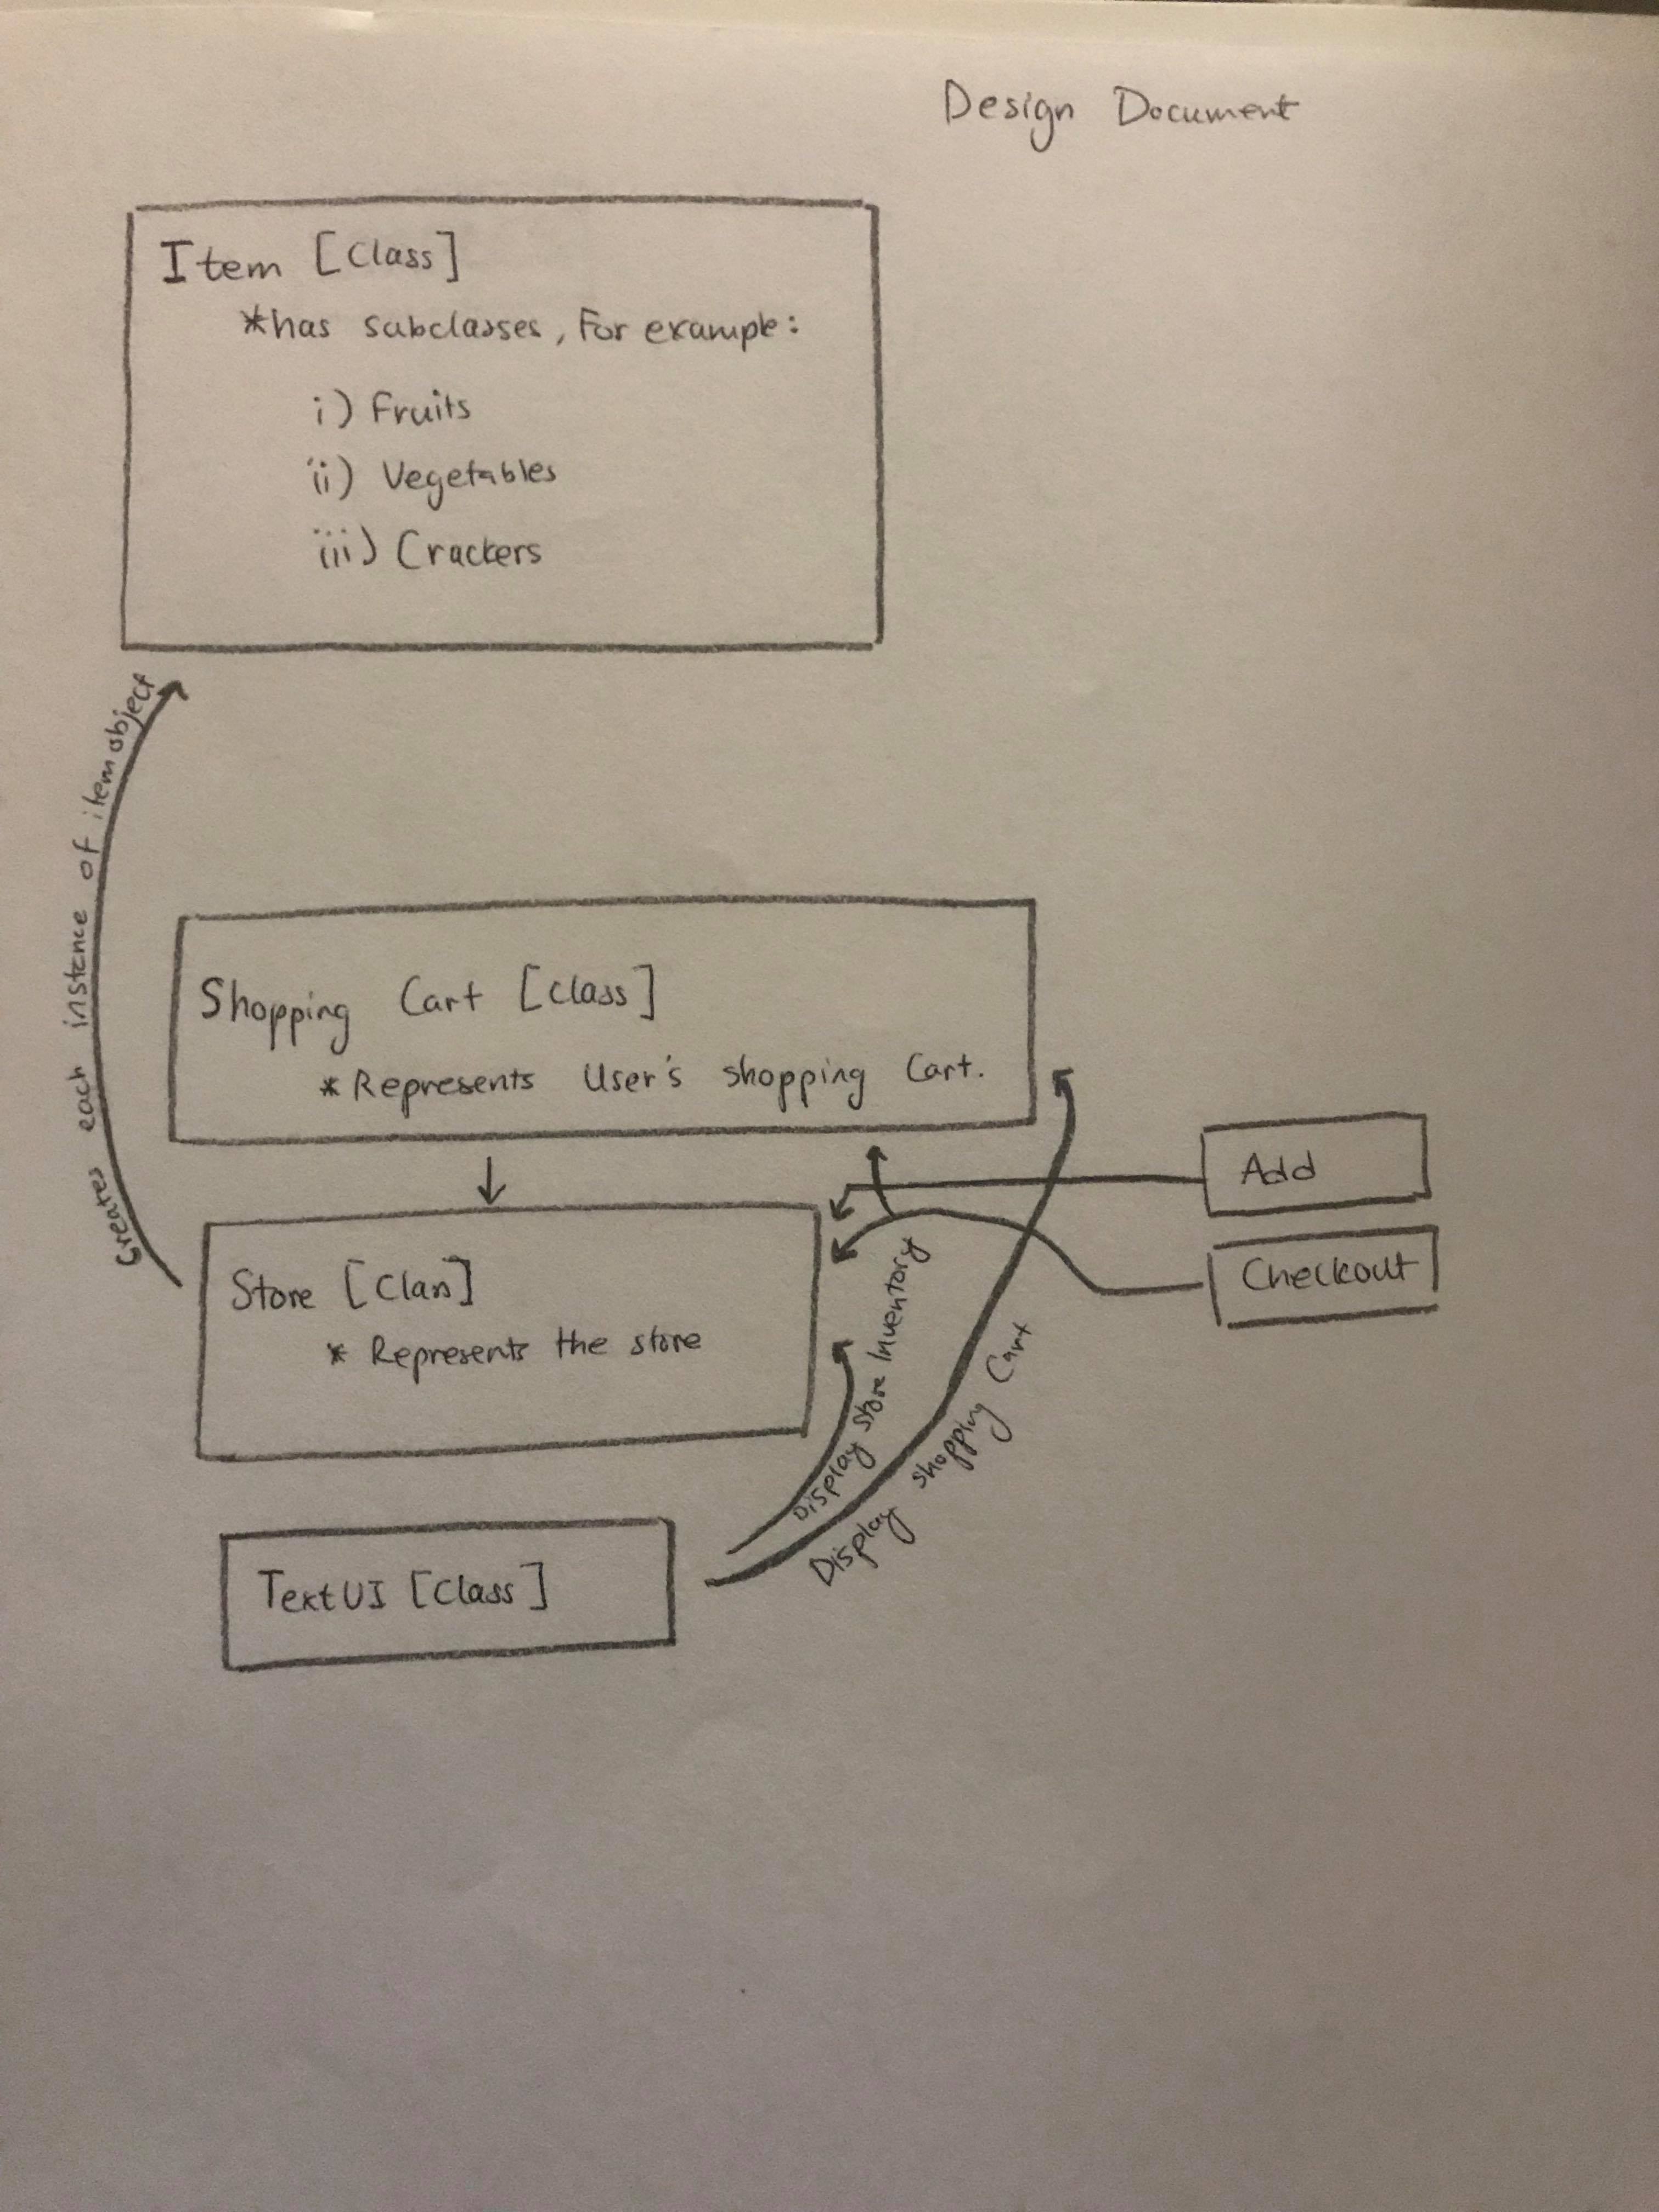 Design Document
Item [Class]
*has subclasses, For example:
i) Fruits
ii) Vegetables
iii) Crackers
Creates each instance of item object
Shopping Cart [Class]
* Represents User's shopping Cart.
Add
Checkout
Store [Class]
* Represents the store
Display Store Inventory
Display Shopping Cart
TextUI [Class]